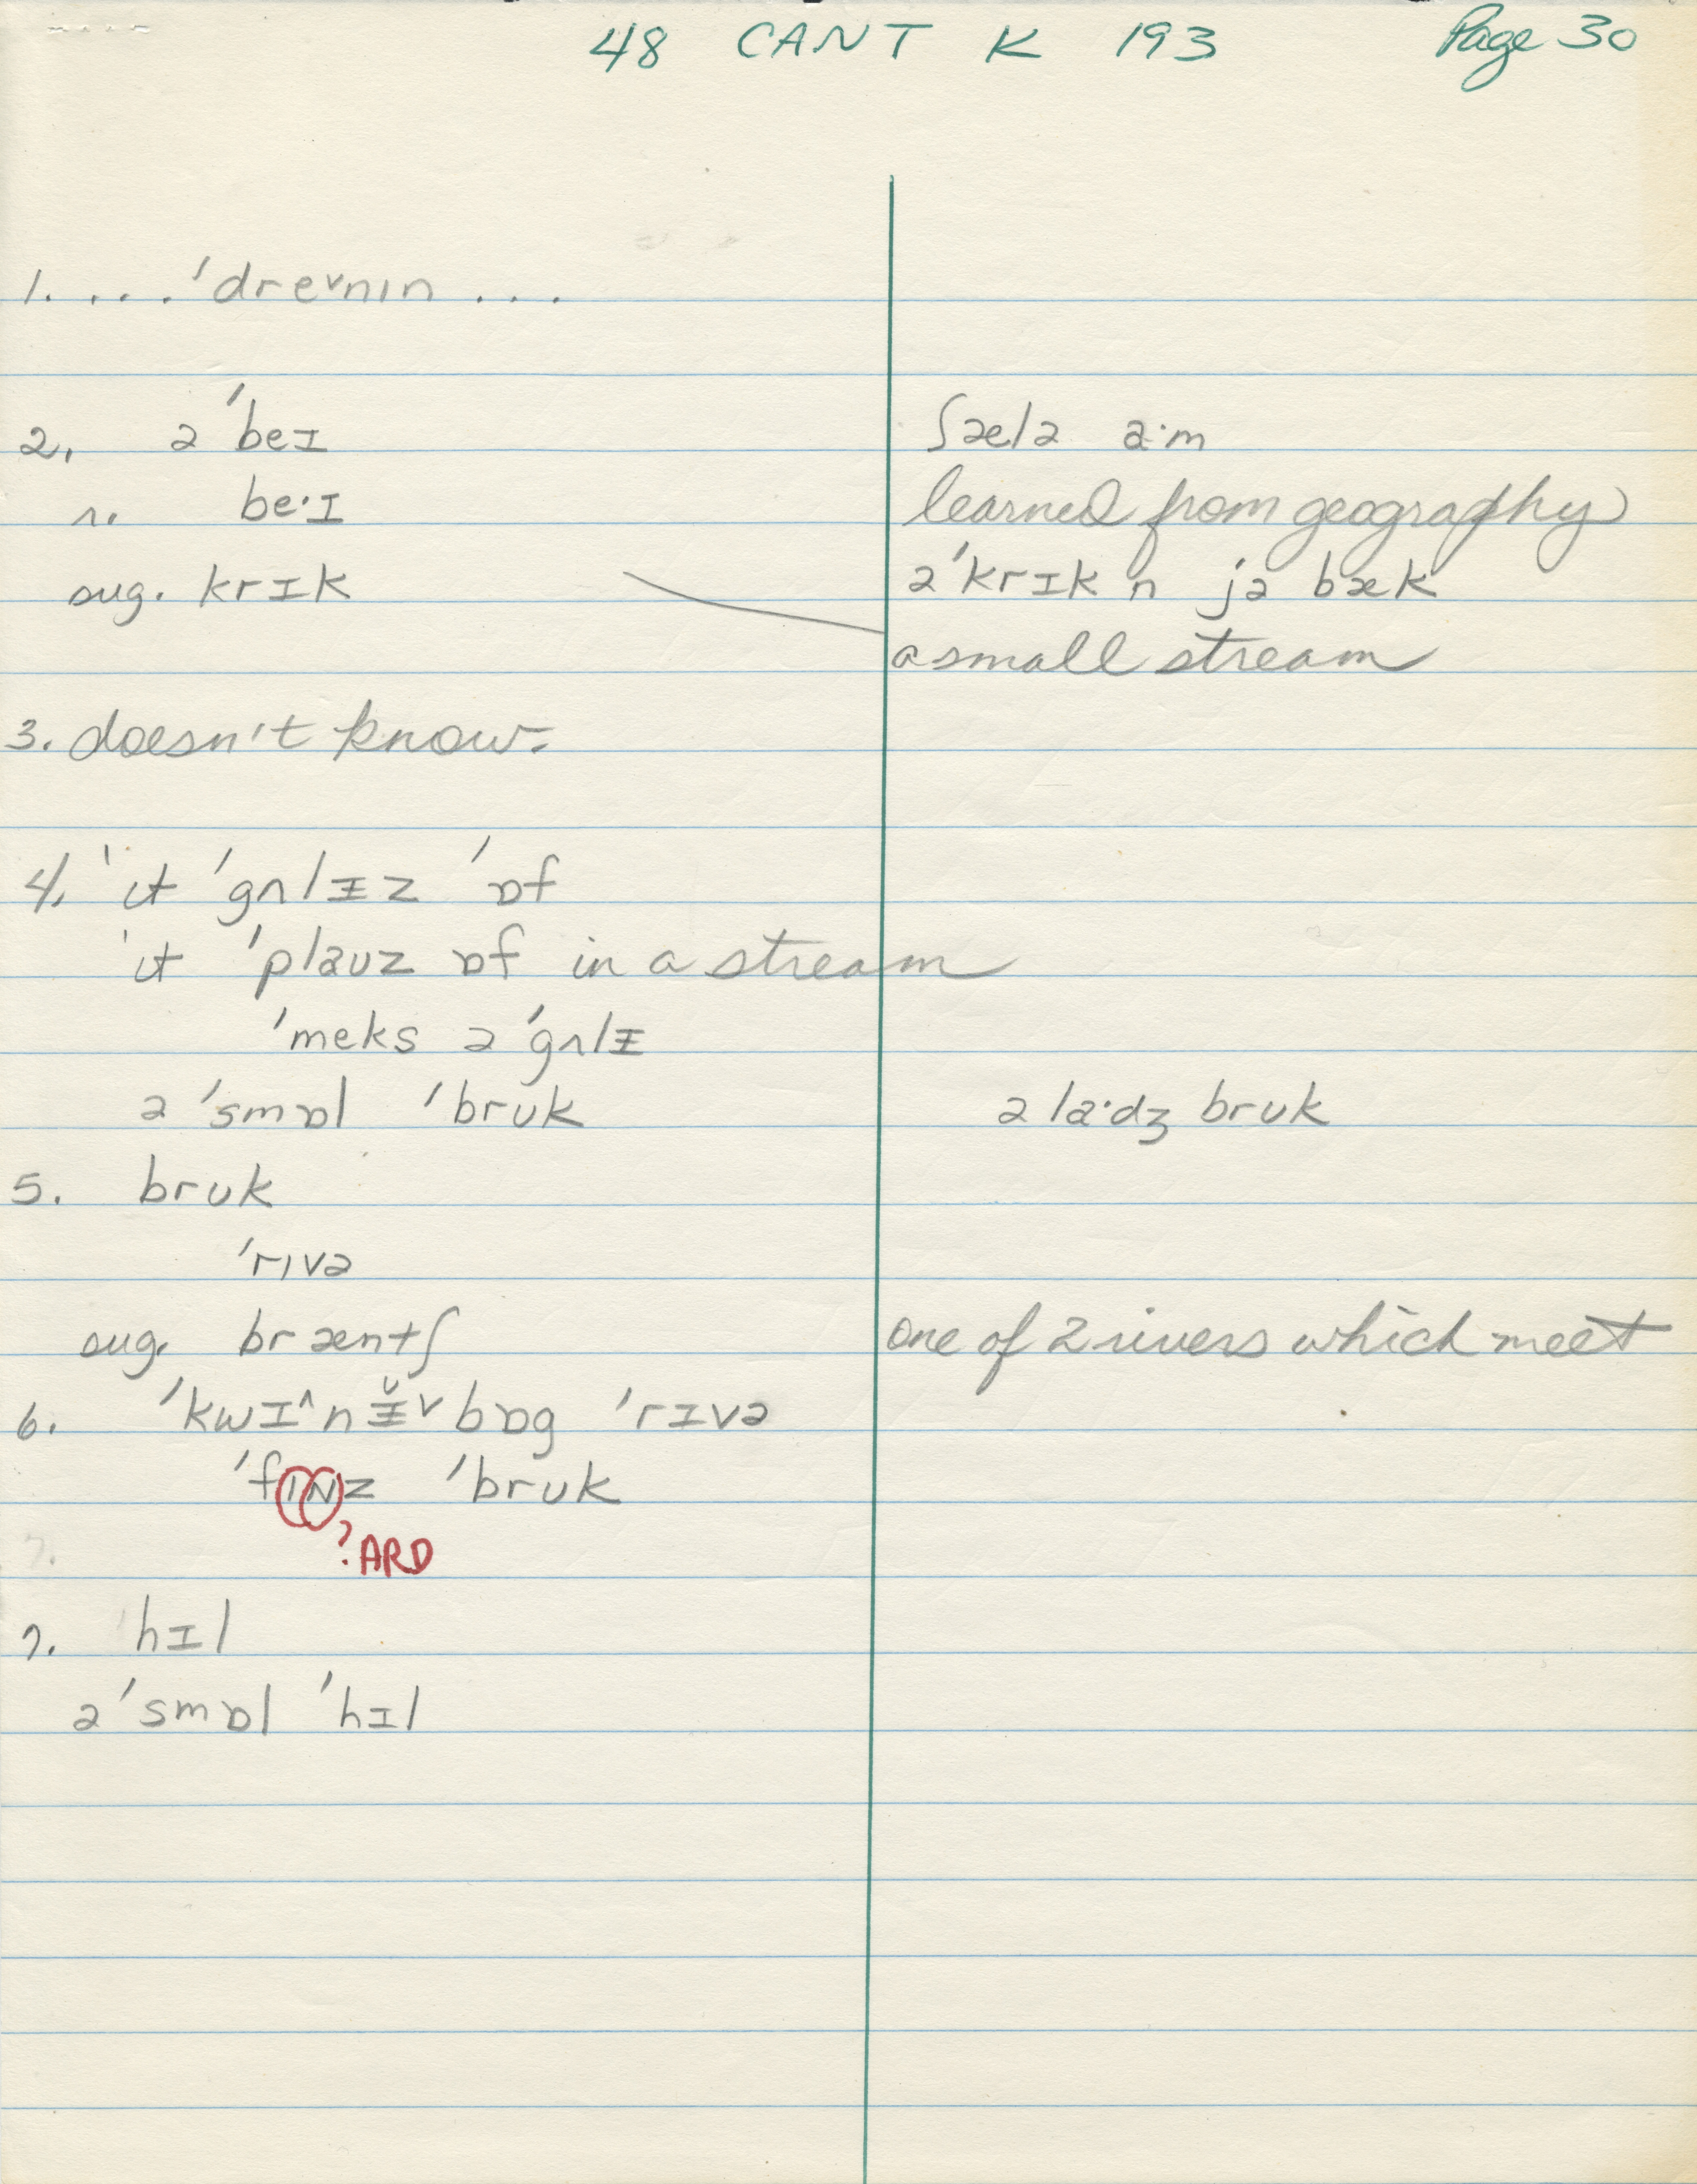 48 CANT K 193 Page 30
1. . . . 'dre˅nɪn . . .
2. ə 'beɪ ʃælə a·m
r. be·ɪ learned from geography
sug. krɪk ə 'krɪk n jə bæk
a small stream
3. doesn't know.
4. 'ɪt 'gʌlɪz 'ɒf
'ɪt 'plaʊz ɒf in a stream
'meks ə 'gʌlɪ
ə 'smɒl 'brʊk ə la·dʒ brʊk
5. brʊk
'rɪvə
sug. bræntʃ one of 2 rivers which meet
6. 'kwɪ˄nɪ̵̆˅bɒg 'rɪvə
'fɪNz 'brʊk
? ARD
7. 'hɪl
ə 'smɒl 'hɪl